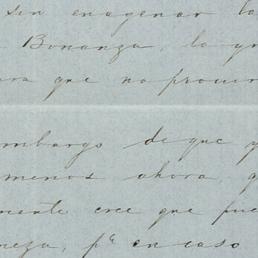 sin enagenar la
Bonanza, la
que no
embargo de que y
menos ahora q
mente cree que pue
neza, pª en caso